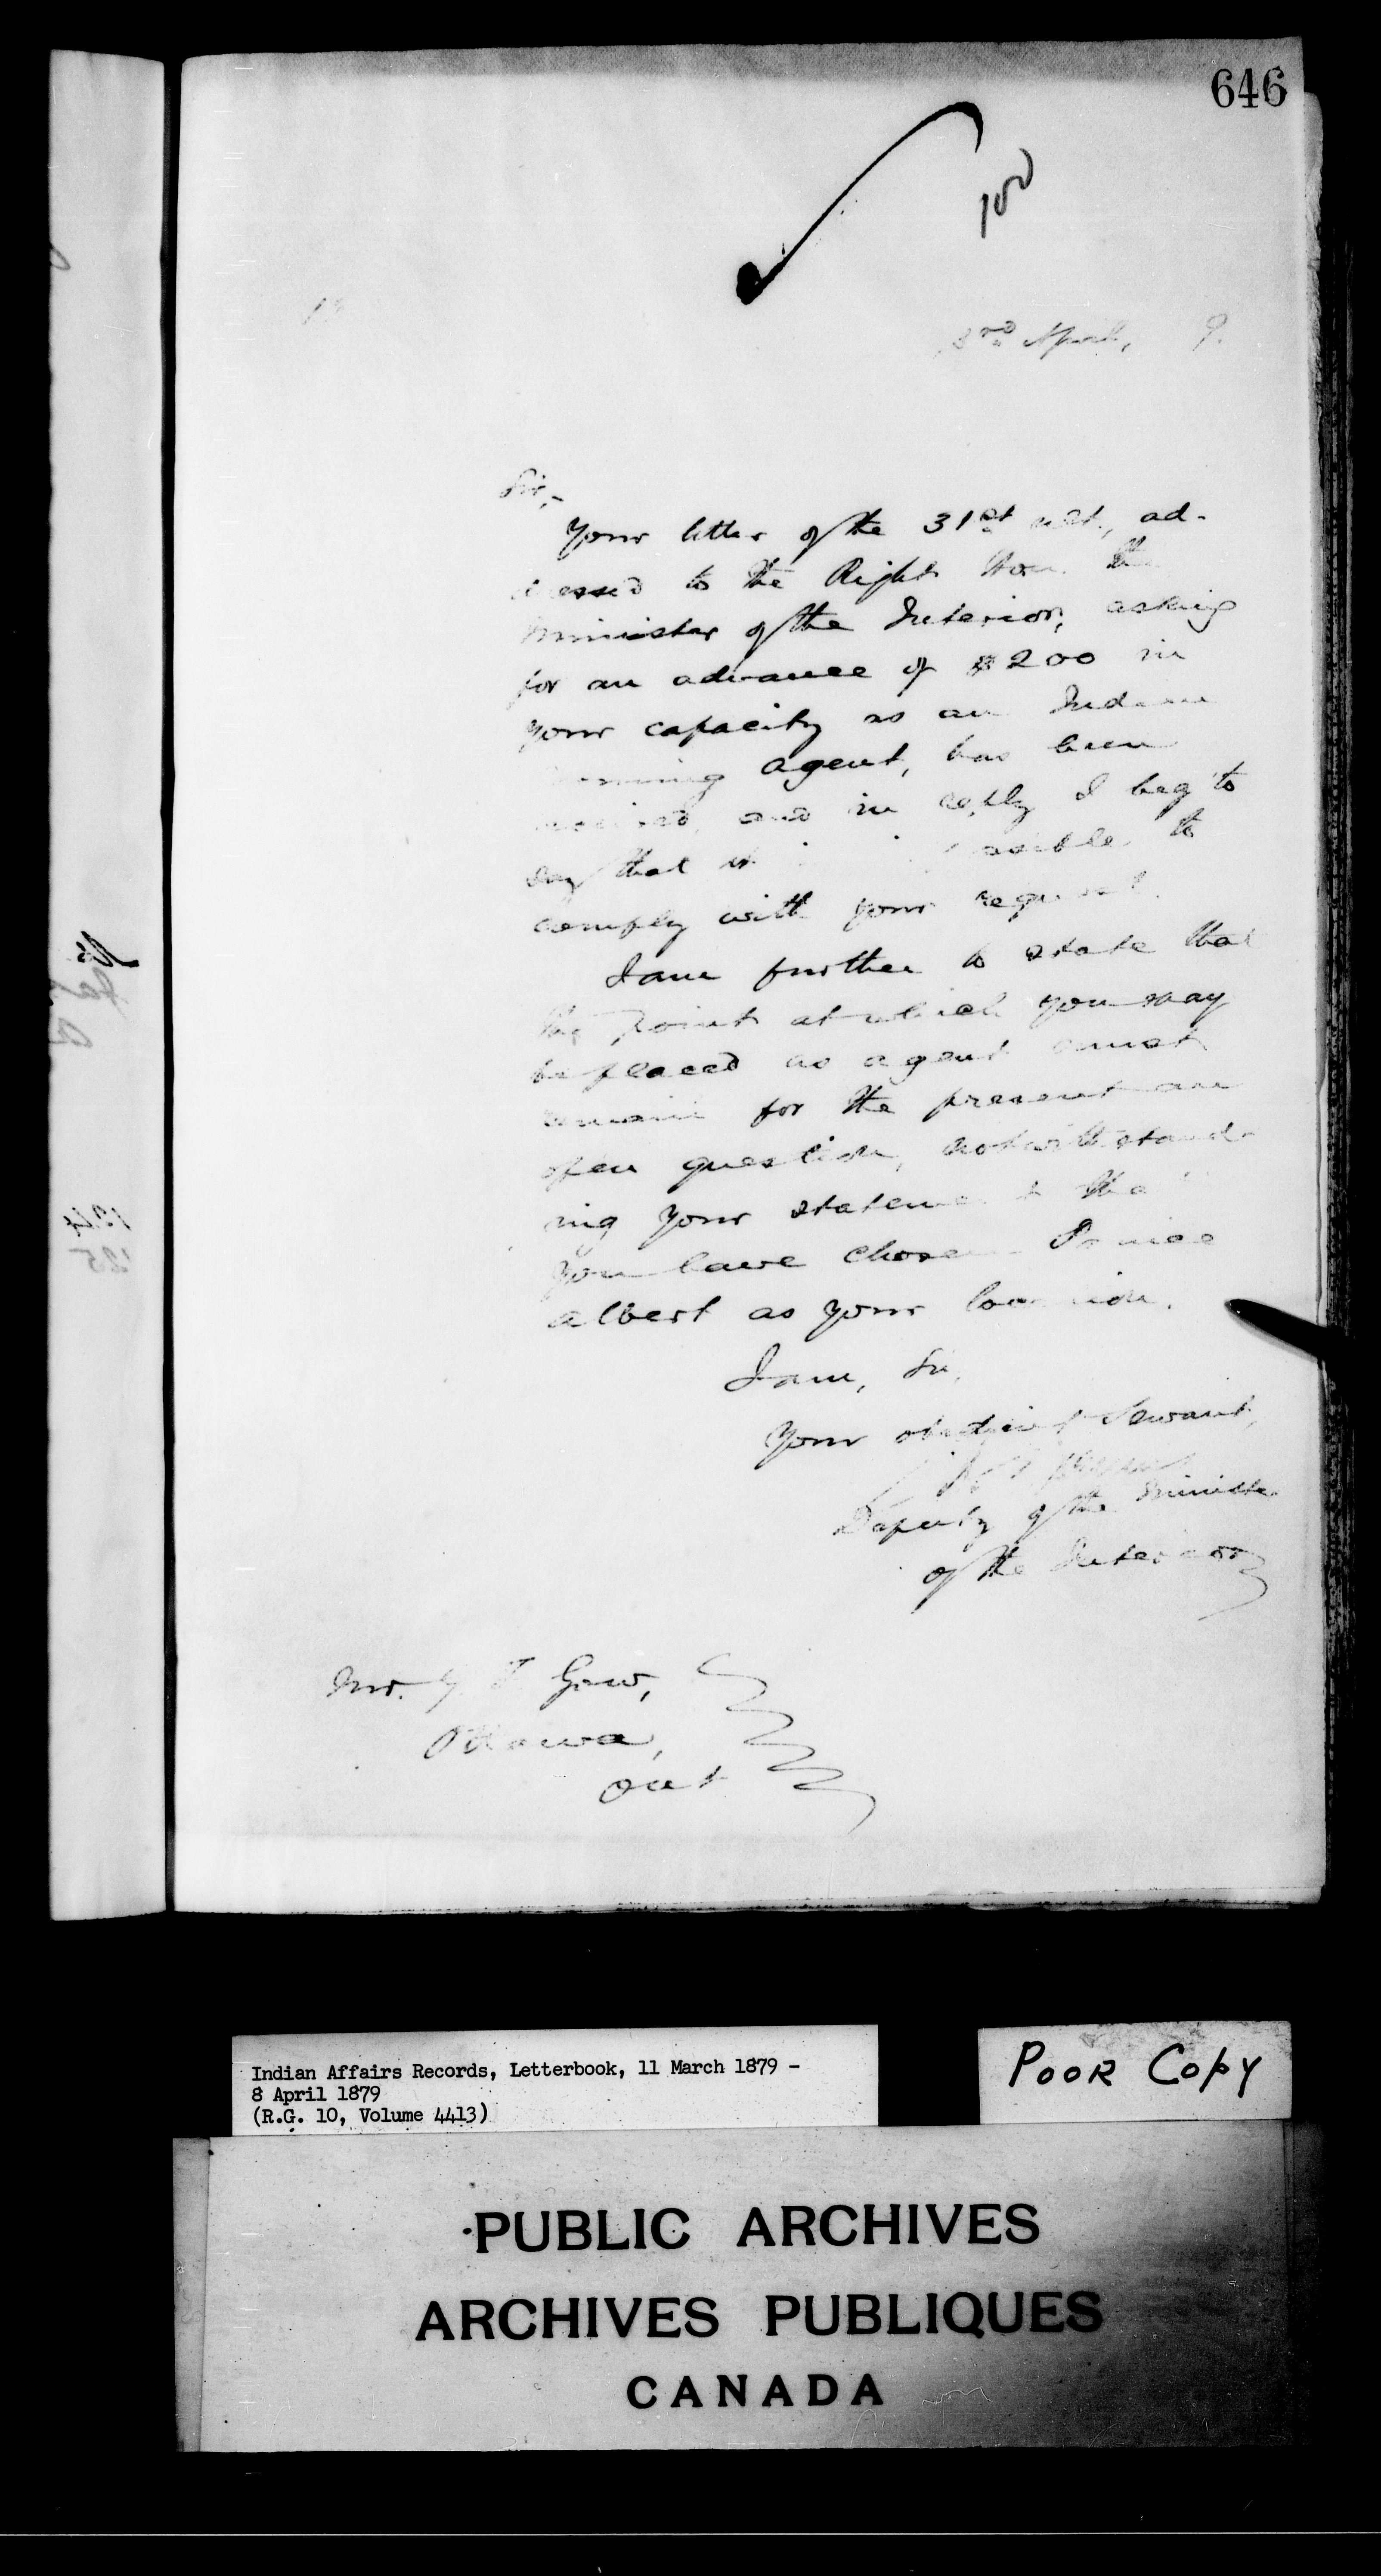 646
100
3rd April, 9.
Sir,-
Your letter of the 31st ult., ad-
dressed to the Right Hon. the
Minister of the Interior, asking
for an advance of $200 in
your capacity as an Indian
agent, has been
and in reply I beg to
say that it to
comply with your request.
I am further to state that
the point at which you may
be placed as agent must
remain for the present an
open question, notwithstand-
ing your statement that
you have chosen Prince
Albert as your location.
I am, Sir,
Your obedient Servant,
Deputy of the Minister
of the Interior
Mr. Gow,
Ottawa,
Ont
Indian Affairs Records, Letterbook, 11 March 1879 -
8 April 1879
(R.G. 10, Volume 4413)
POOR COPY
PUBLIC ARCHIVES
ARCHIVES PUBLIQUES
CANADA